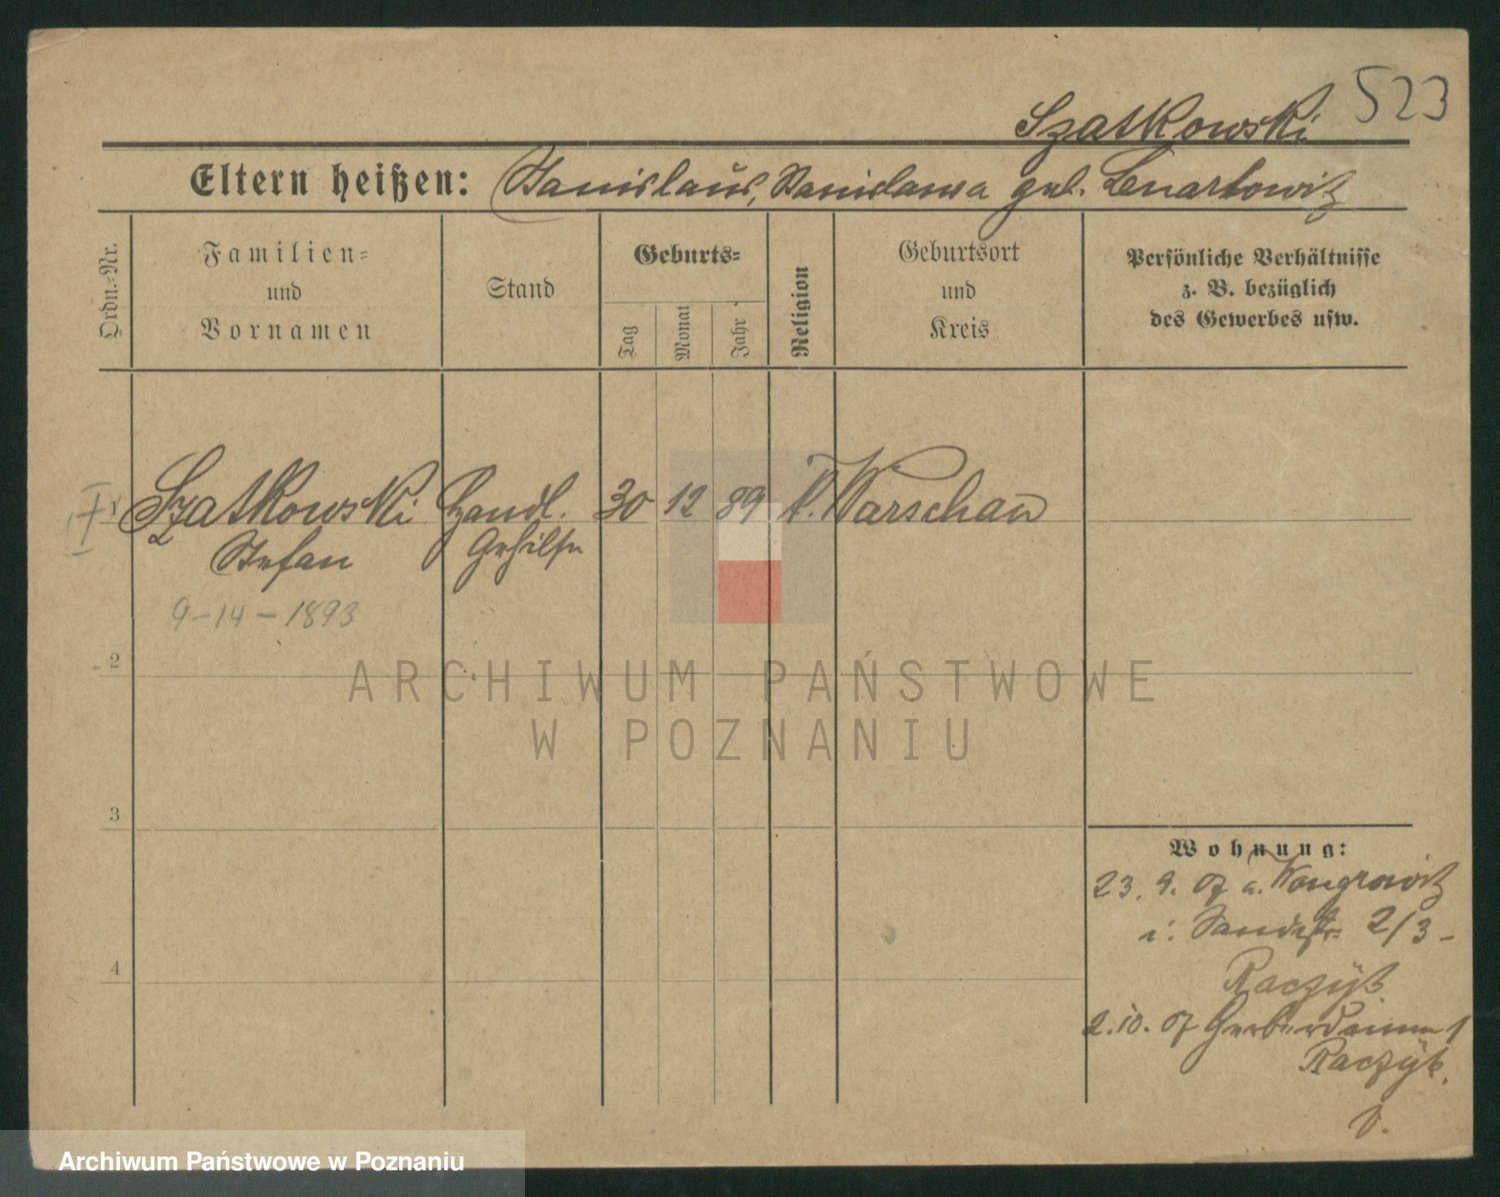 523
Szatkowski
Eltern heißen: Stanislaus, Stanislawa geb. Lenartowitz
Ordn.-Nr.
Familien-
und
Vornamen
Stand
Geburts-
Tag
Monat
Jahr
Religion
Geburtsort
und
Kreis
Persönliche Verhältnisse
z. B. bezüglich
des Gewerbes usw.
1 Szatkowski Handl. 30 12 89 k. Warschau
Stefan Gehilfe
9-14-1893
2
3
4
ARCHIWUM PAŃSTWOWE
W POZNANIU
Wohnung:
23. 9. 07 a. Wongrowitz
i. Sandstr. 2/3 -
2.10.07 Gerberdamm 1
Archiwum Państwowe w Poznaniu